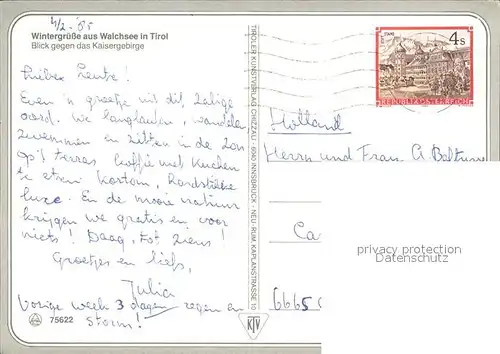 4/2-'85
Wintergrüße aus Walchsee in Tirol
Blick gegen das Kaisergebirge
Lieber Leute!
Even 'n groetje uit dit zalige
oord. We langlaufen, wandelen,
zwemmen en zitten in de zon
op't terras koffie met Kuchen
te eten. Kortom,
luxe. En de mooie natuur
krijgen we gratis en voor
niets! Daag, tot ziens!
Groetjes en liefs,
Julia
Vorige week 3 dagen regen en
storm!
75622
TIROLER KUNSTVERLAG CHIZZALI · 6040 INNSBRUCK - NEU-RUM, KAPLANSTRASSE 10
KTV
4 S
STIFT STAMS
REPUBLIK ÖSTERREICH
Holland
Herrn und Frau A. Baltus
Ca
6665
privacy protection
Datenschutz